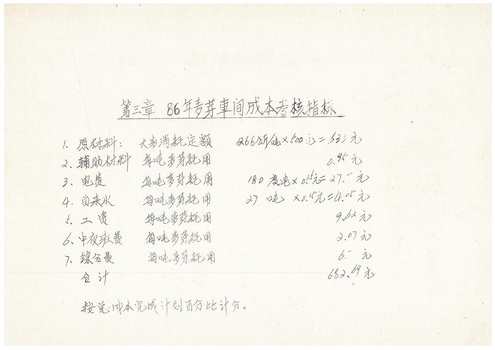 第三章 86年麦芽車间成本考核指标
1. 原材料: 大麦消耗定额 ×500元=633元
2. 辅助材料 每吨麦芽耗用 0.95元
3. 电费 每吨麦芽耗用 180度电×0.15元=27.-元
4. 自来水 每吨麦芽耗用 27吨×0.15元=4.05元
5. 工资 每吨麦芽耗用 9.62元
6. 中夜班费 每吨麦芽耗用 2.07元
7. 综合费 每吨麦芽耗用 6.-元
合计 682.69元
成本完成计划百分比计分。